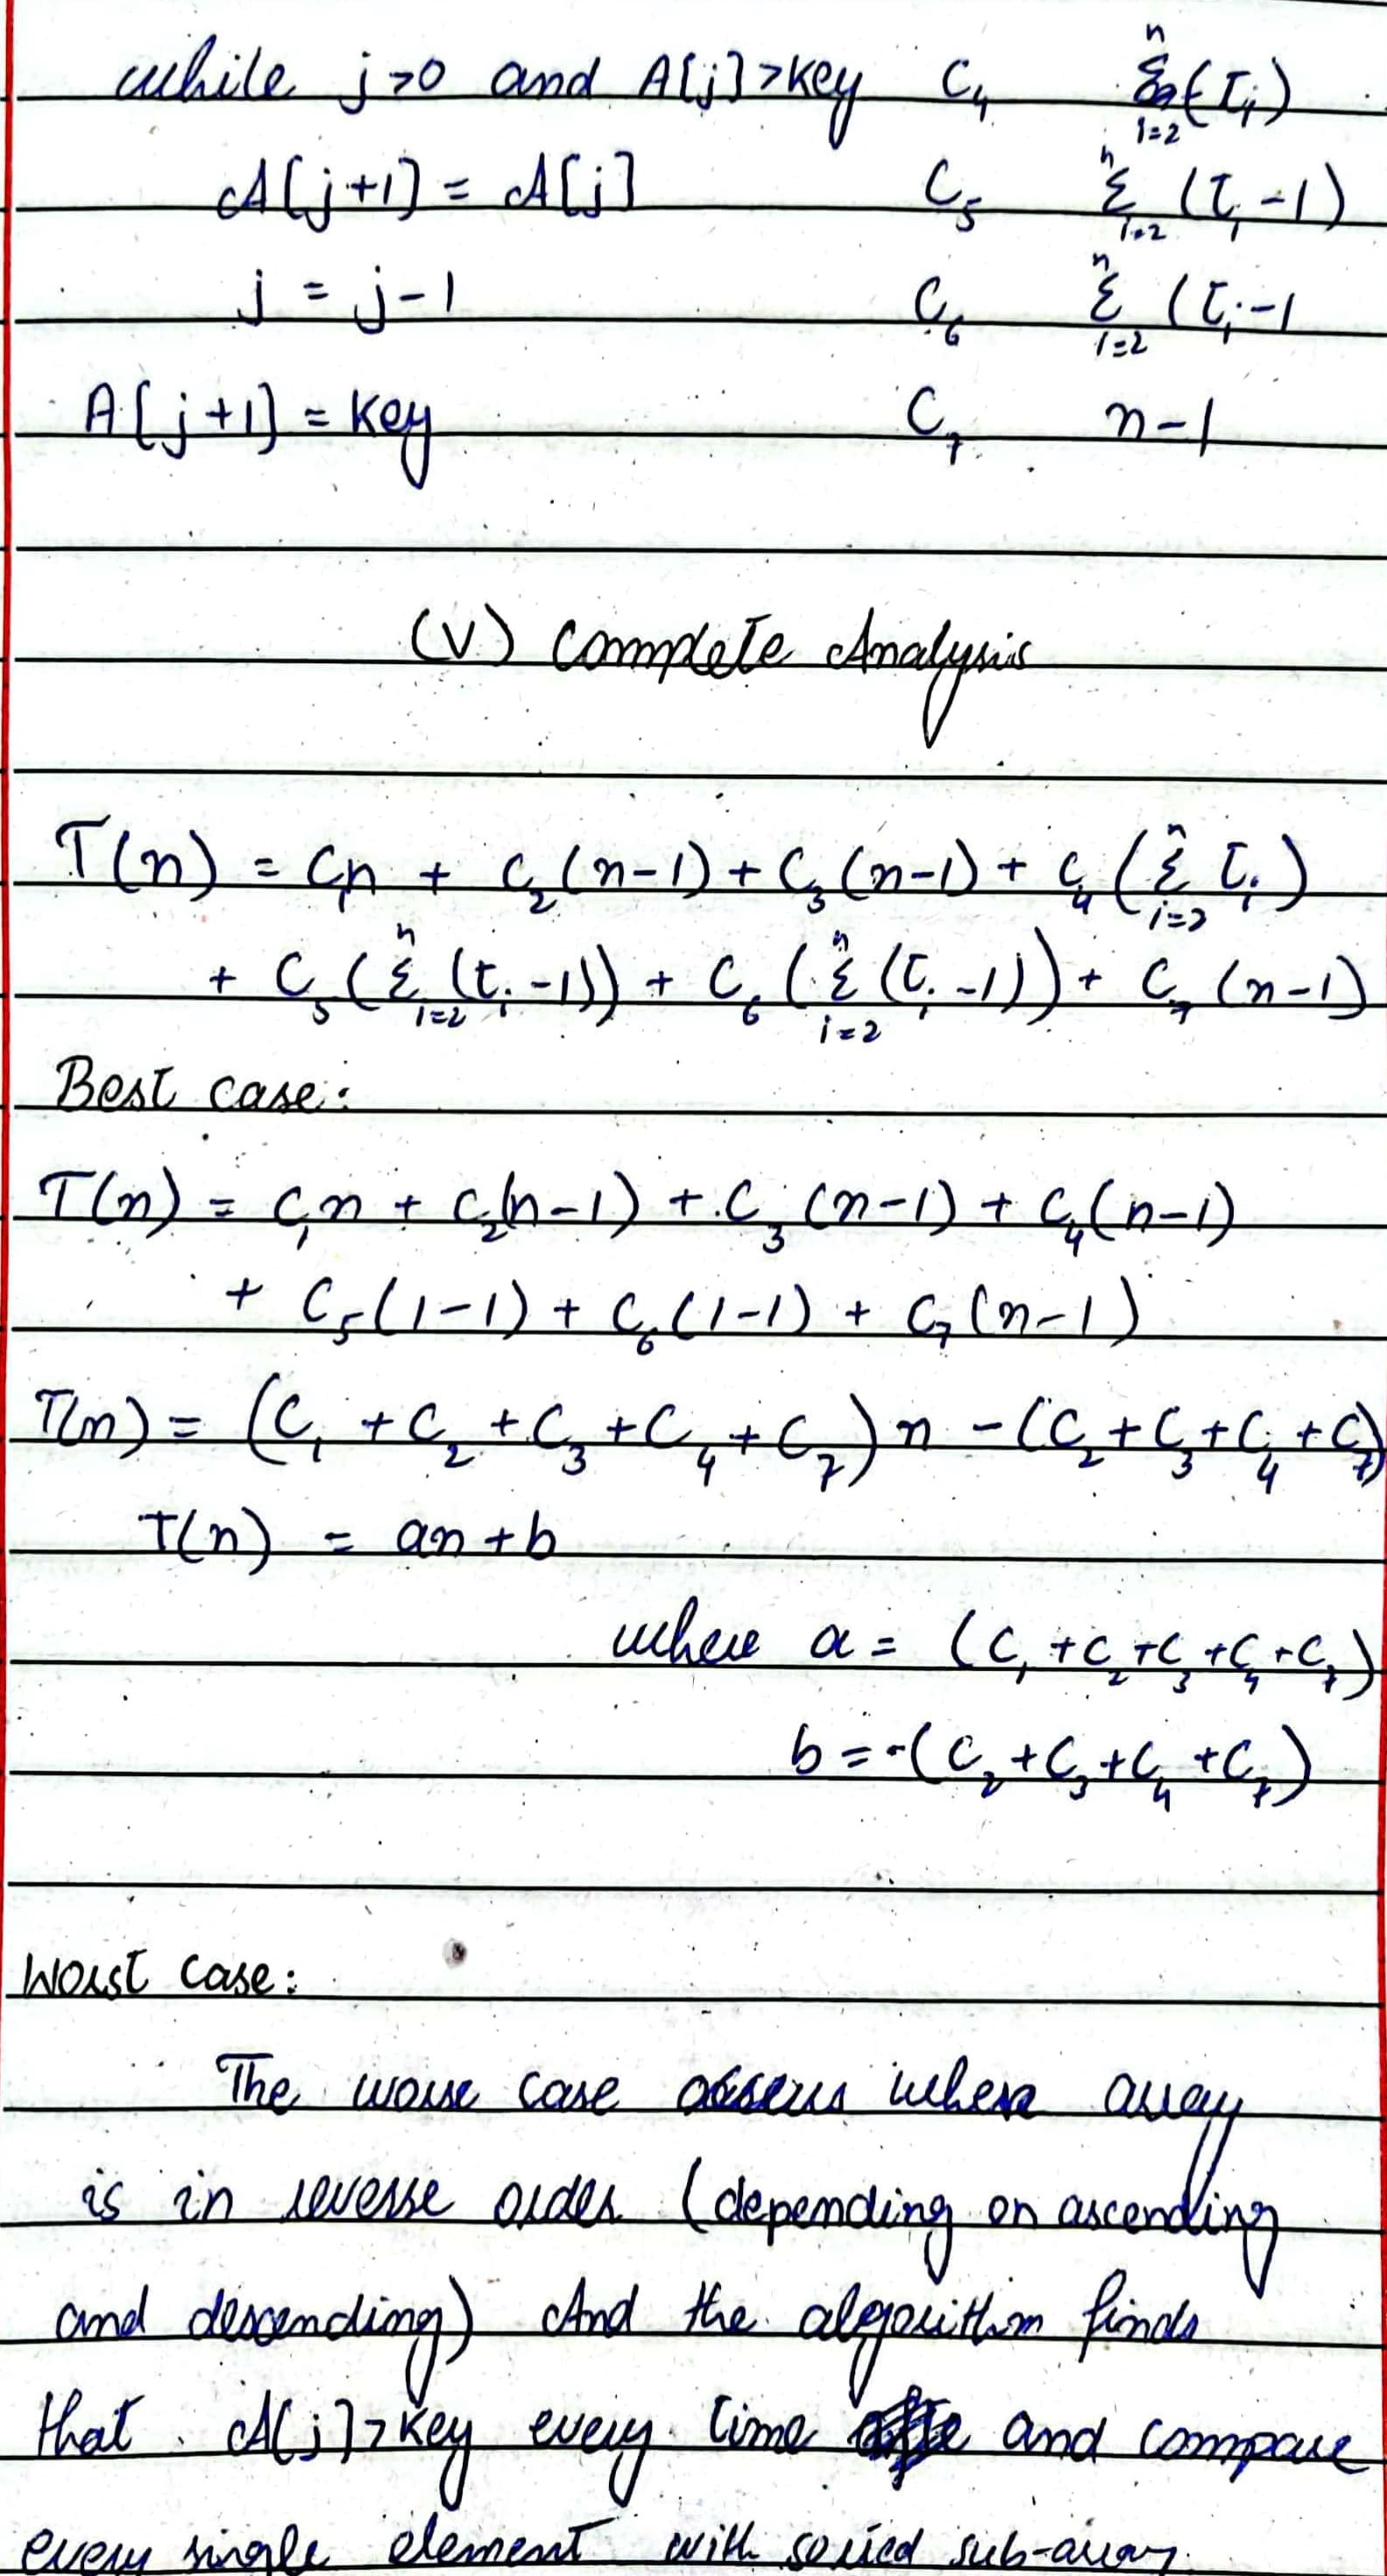 while j>0 and A[j]>key C₄ ⁿΣᵢ₌₂(tᵢ)
A[j+1] = A[j] C₅ ⁿΣᵢ₌₂ (tᵢ-1)
j = j-1 C₆ ⁿΣᵢ₌₂ (tᵢ-1
A[j+1] = key C₇ n-1
(V) Complete Analysis
T(n) = C₁n + C₂(n-1) + C₃(n-1) + C₄(ⁿΣᵢ₌₂ tᵢ)
+ C₅(ⁿΣᵢ₌₂ (tᵢ-1)) + C₆(ⁿΣᵢ₌₂ (tᵢ-1)) + C₇(n-1)
Best case:
T(n) = C₁n + C₂(n-1) + C₃(n-1) + C₄(n-1)
+ C₅(1-1) + C₆(1-1) + C₇(n-1)
T(n) = (C₁ + C₂ + C₃ + C₄ + C₇)n - (C₂ + C₃ + C₄ + C₇)
T(n) = an+b
where a = (C₁ + C₂ + C₃ + C₄ + C₇)
b = -(C₂ + C₃ + C₄ + C₇)
Worst case:
The worse case when array
is in reverse order (depending on ascending
and descending) And the algorithm finds
that A[j]>key every time and compare
every single element with sorted sub-array.